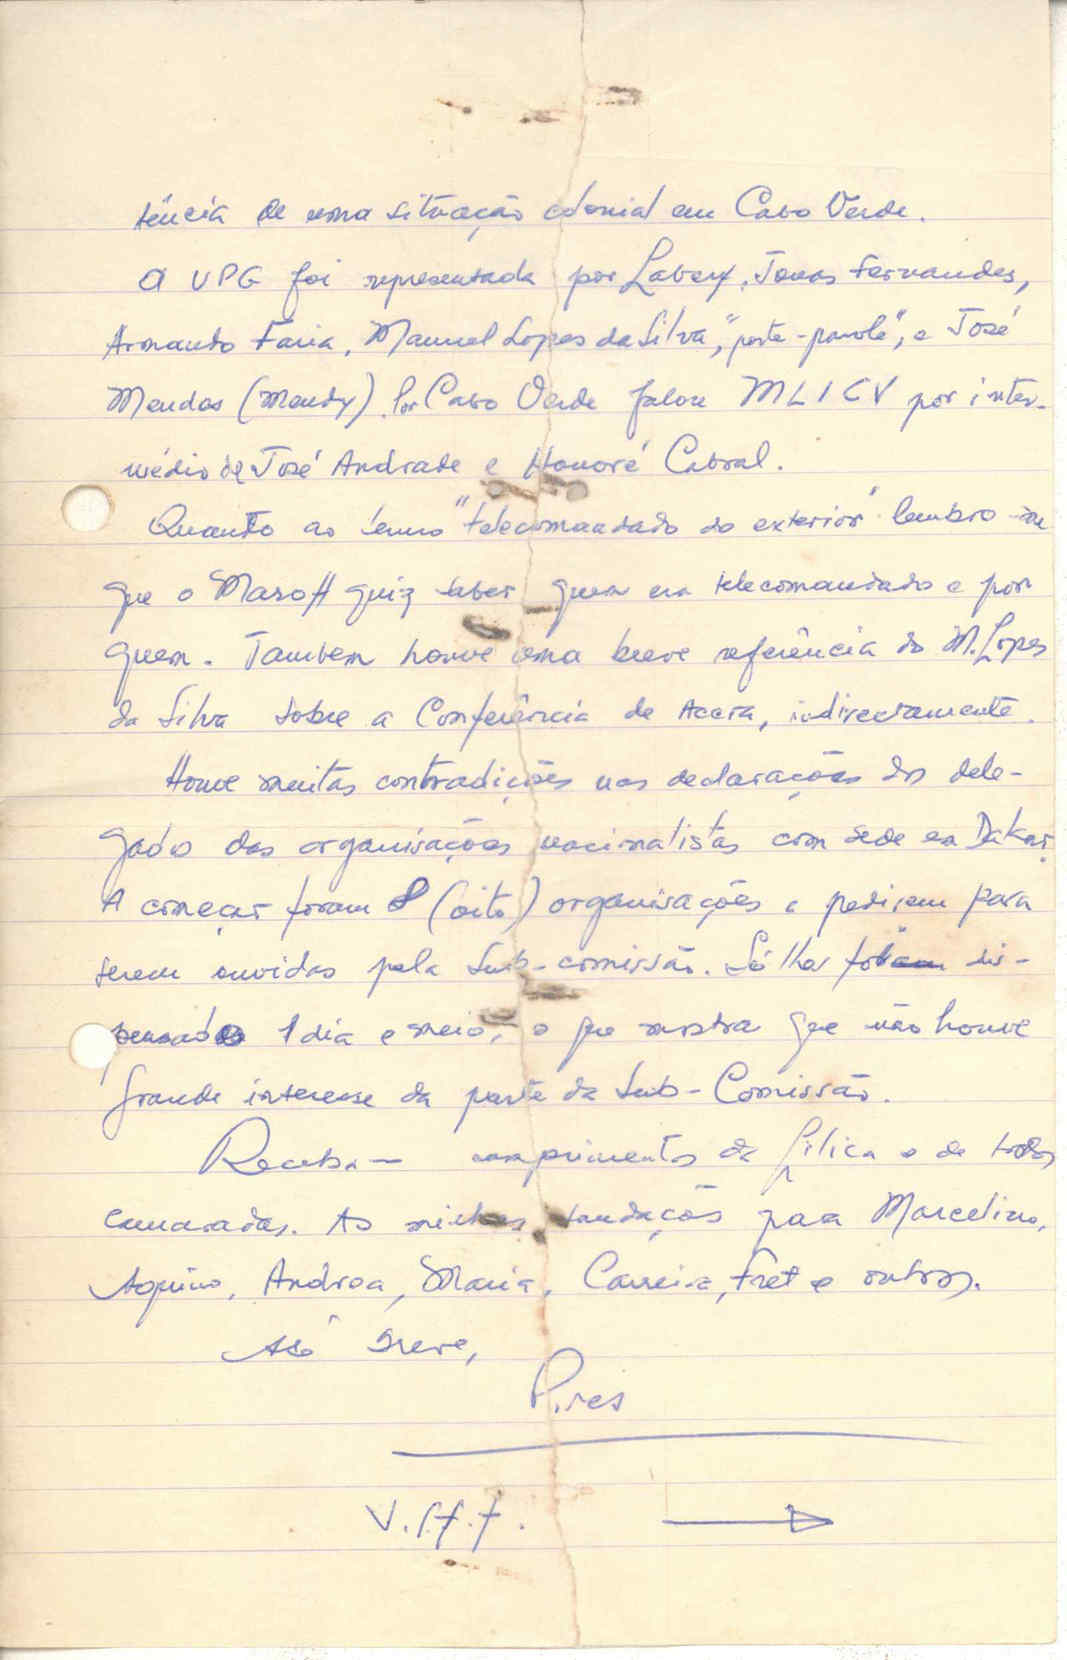 tência de uma situação colonial em Cabo Verde.
A UPG foi representada por Labery, Jonas Fernandes,
Armando Faria, Manuel Lopes da Silva, "porte-parole", e José
Mendes (Mendy). Por Cabo Verde falou MLICV por inter-
médio de José Andrade e Honoré Cabral.
Quanto ao termo "telecomandado do exterior" lembro-me
que o Maroff quiz saber quem era telecomandado e por
quem. Tambem houve uma breve referência do M. Lopes
da Silva sobre a Conferência de Accra, indirectamente.
Houve muitas contradições nas declarações dos dele-
gados das organisações nacionalistas com sede em Dakar.
A começar foram 8 (oito) organisações a pedirem para
serem ouvidas pela Sub-comissão. Só lhes dis-
pensado 1 dia e meio, o que mostra que não houve
grande interesse da parte da Sub-Comissão.
Receba - cumprimentos da Lilica e de todos
camaradas. As minhas saudações para Marcelino,
Aquino, Andrea, Maria, Carreira, Fret e outros.
Até breve,
Pires
V.S.F.F.